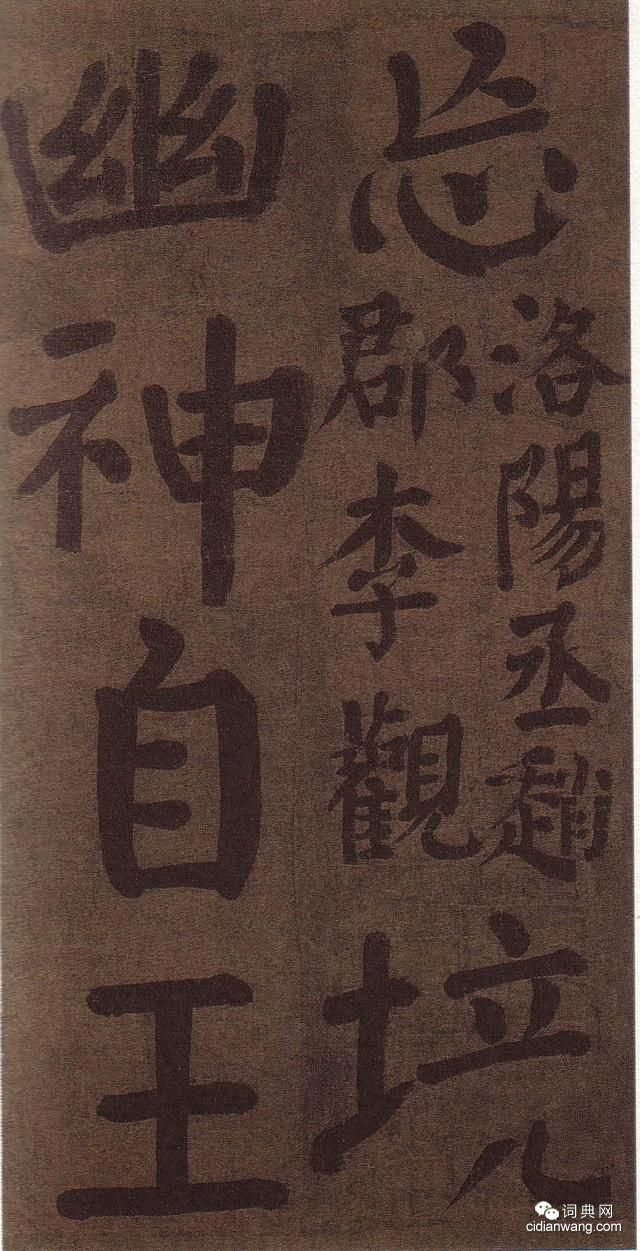 忘
洛陽丞趙
郡李觀
坑
幽神自王
词典网
cidianwang.com